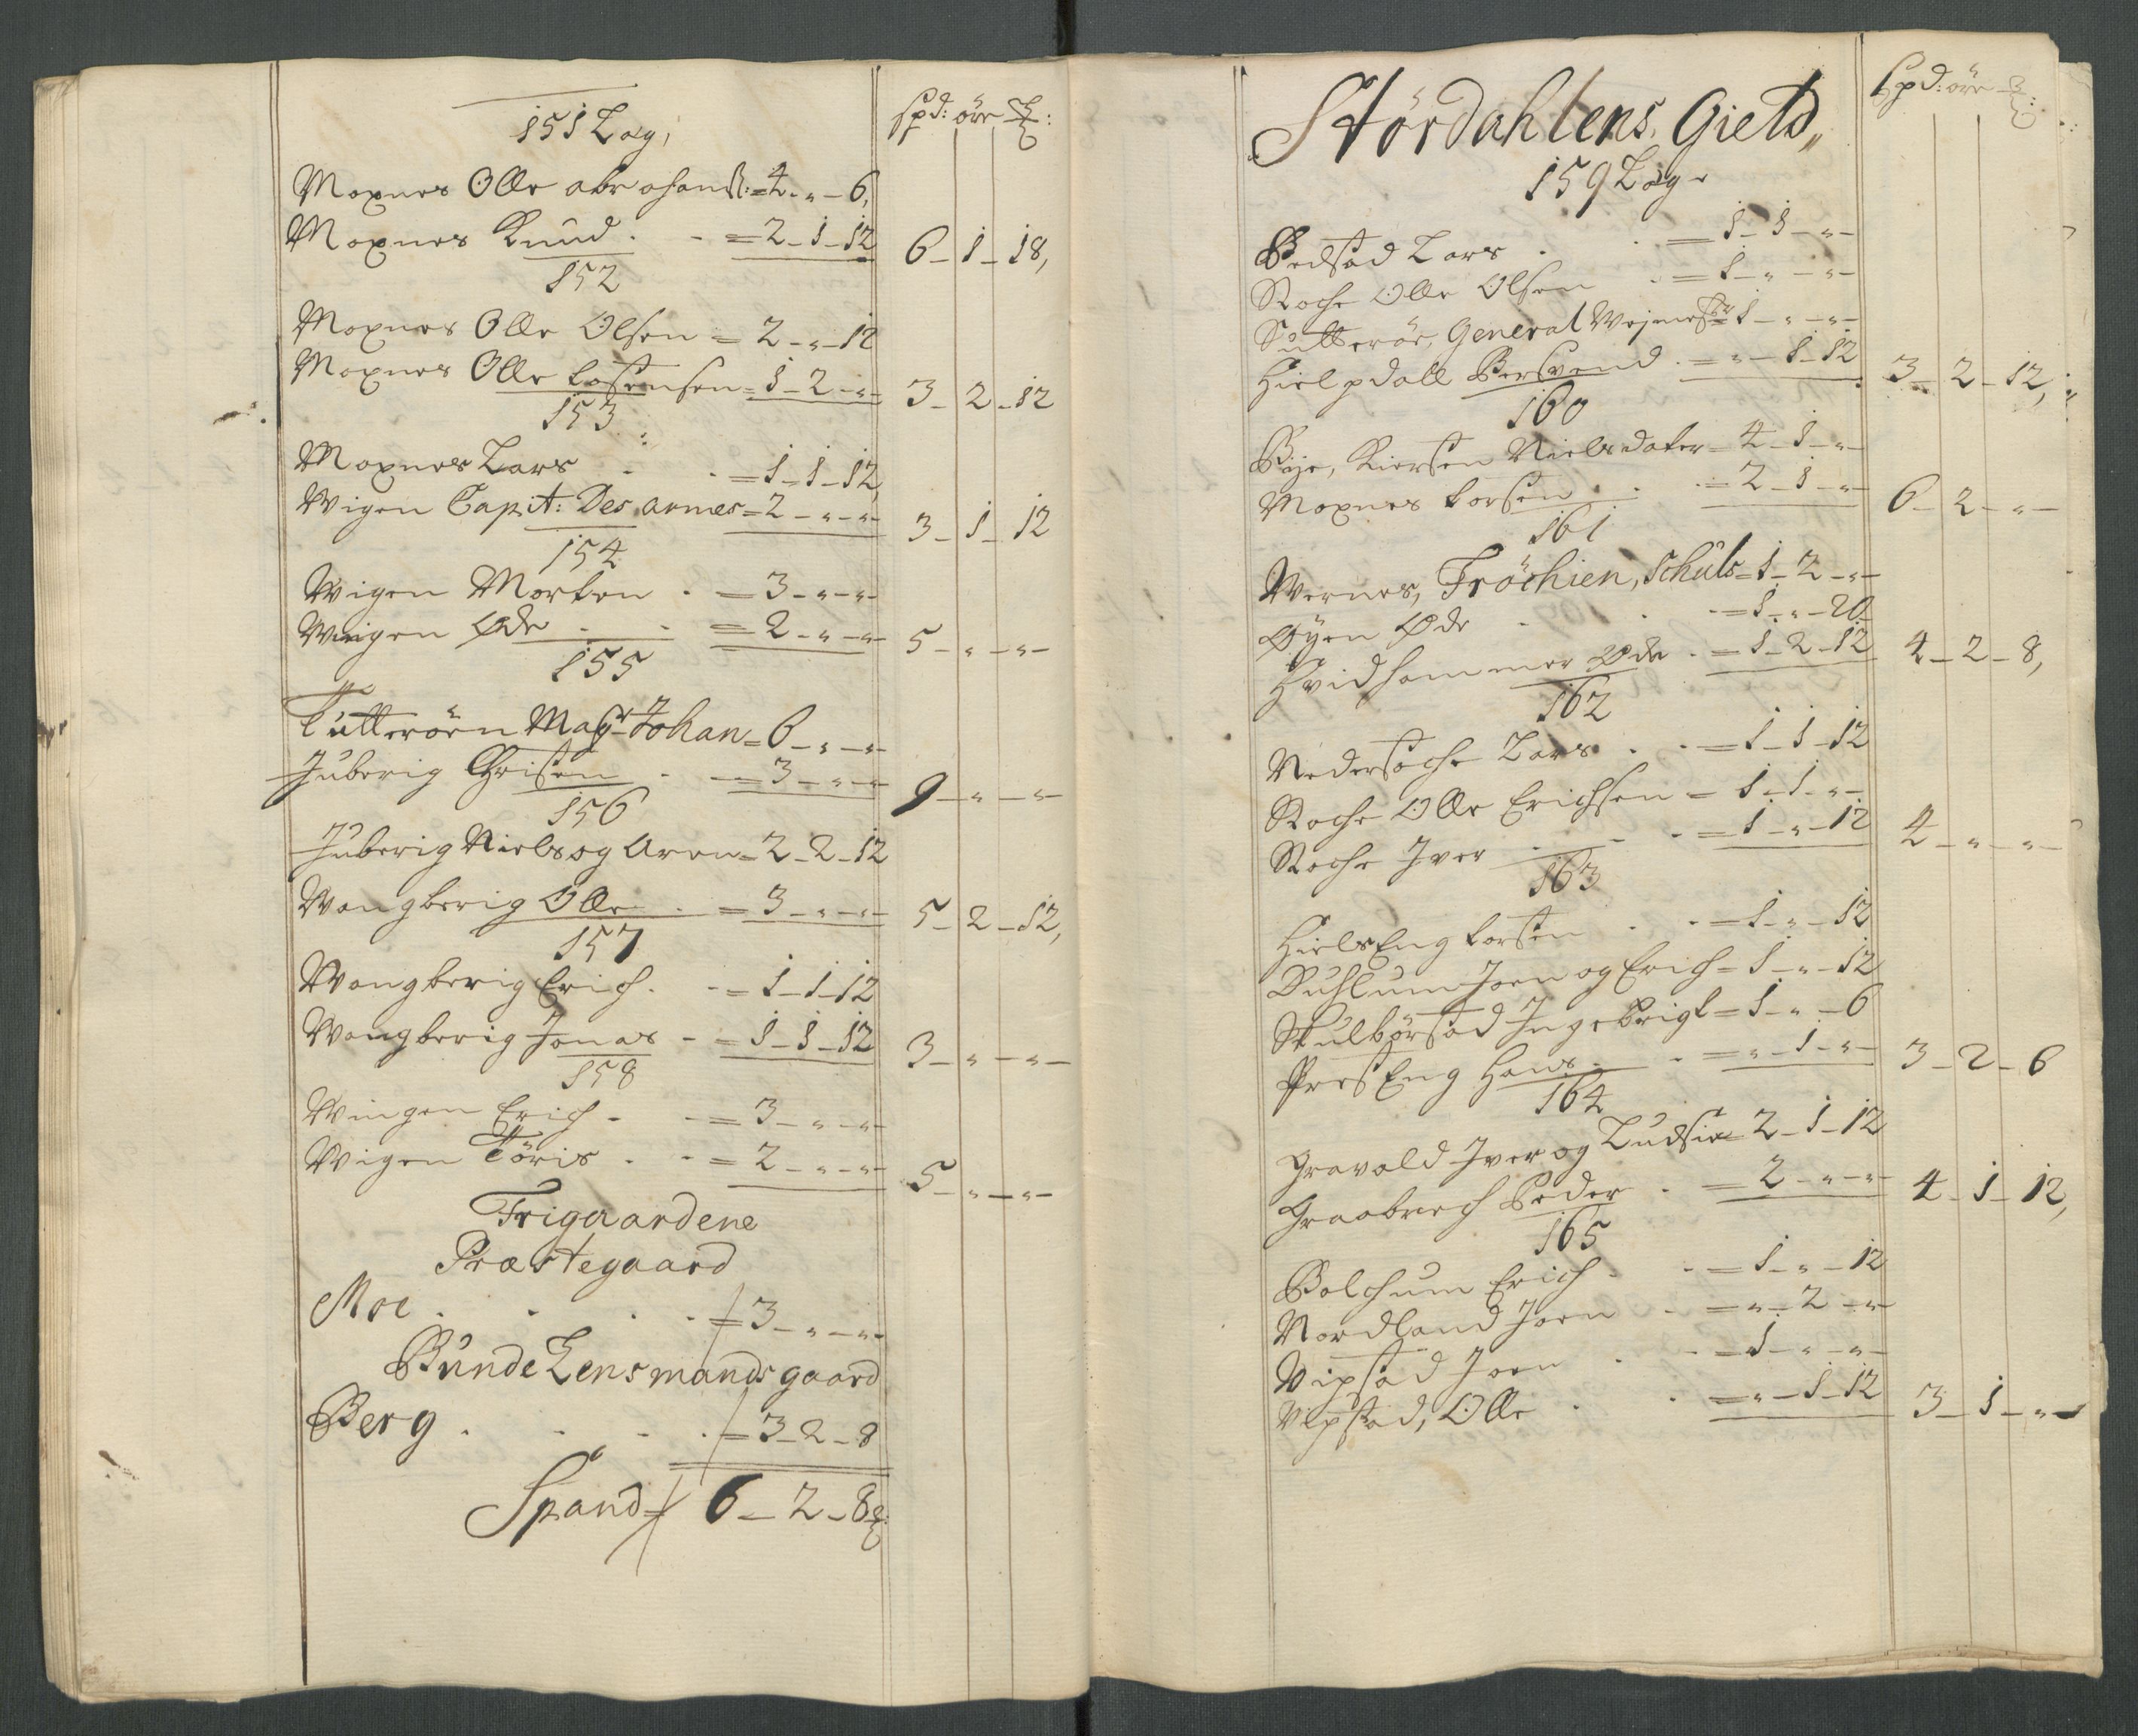 Spd: öre
151 Læg,
Moxnes Olle abrahams:=4-"-6,
Moxnes Knud . - =2-1-12 6-1-18,
152
Moxnes Olle Olsen = 2-"-12
Moxnes Olle Tostensen=1-2-"- 3-2-12
153
Moxnes Lars - . =1-1-12
Wigen Capit: Des armes=2-"-"- 3-1-12
154
Wigen Morten . =3-"-"-
Wiigen Øde . . =2-"-"- 5-"-"-
155
Tutterøen Magr Johan=6-"-"-
Juberig Christen . =3-"-"- 9-"-"-
156
Juberig Niels og Aren=2-2-12
Wongberig Olle . =3-"-"- 5-2-12,
157
Wongberig Erich . -=1-1-12
Wongberig Jonas - =1-1-12 3-"-"-
158
Wiingen Erich - -=3-"-"-
Wigen Töris . -=2-"-"- 5-"-"-
Frigaardene
Præstegaard
Moe . . . . =3-"-"-
Bunde Lensmands gaard
Berg . - - . =3-2-8
Spand= 6-2-8
Spd: öre
Stördahlens Gield,,
159 Læg
Bedstad Lars . . =1-1-"-
Roche Olle Olsen . =1-"-"-
Sutterøe, General Wejmester=1-"-"-
Hielpdall Berswend . ="-1-12 3-2-12,
160
Bye, Kiersten Nielsdater=4-1-"-
Moxnes Torsten . . =2-1-"- 6-2-"-
161
Wernes, Fröchien, Schults=1-2-"-
Øyen Øde - . =1-"-20
Hvidhammer Øde . =1-2-12 4-2-8,
162
Nederroche Lars . . =1-1-12
Roche Olle Erichsen = 1-1-"-
Roche Iver . - . =1-"-12 4-"-"-
163
HielsEng Torsten . . =1-"-12
Duhlum Joen og Erich=1-"-12
Skulbørstad Ingebrigt=1-"-6
PrestEng Hans . . ="-1-"- 3-2-6
164
Gravold Iver og Ludsie=2-1-12
Graabrech Peder . =2-"-"- 4-1-12,
165
Bolchum Erich . -=1-"-12
Nordland Joen - ="-2-"-
Vipstad Joen . -=1-"-"-
Vipstad, Olle . . ="-1-12 3-1-"-